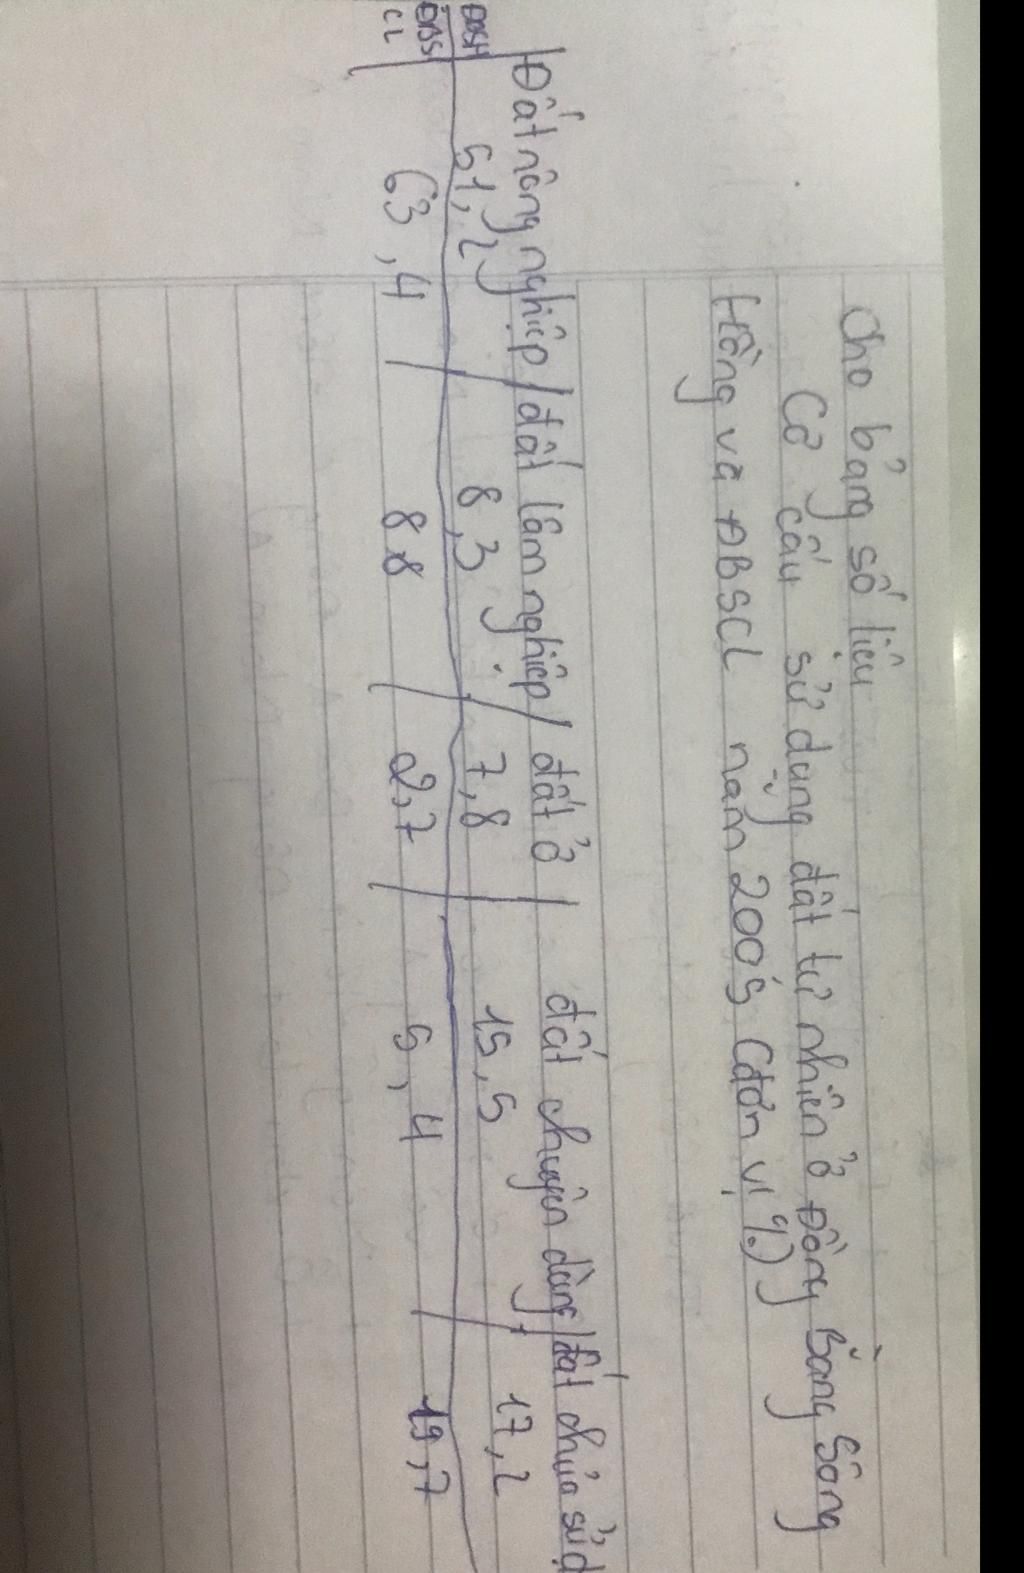 Cho bảng số liệu
Cơ cấu sử dụng đất tự nhiên ở Đồng Bằng Sông
Hồng và ĐBSCL năm 2005 (đơn vị %)
Đất nông nghiệp / đất lâm nghiệp / đất ở / đất chuyên dùng / đất chưa sử d
ĐBSH 51,2 8,3 7,8 15,5 17,2
ĐBS CL 63,4 88 2,7 5,4 19,7